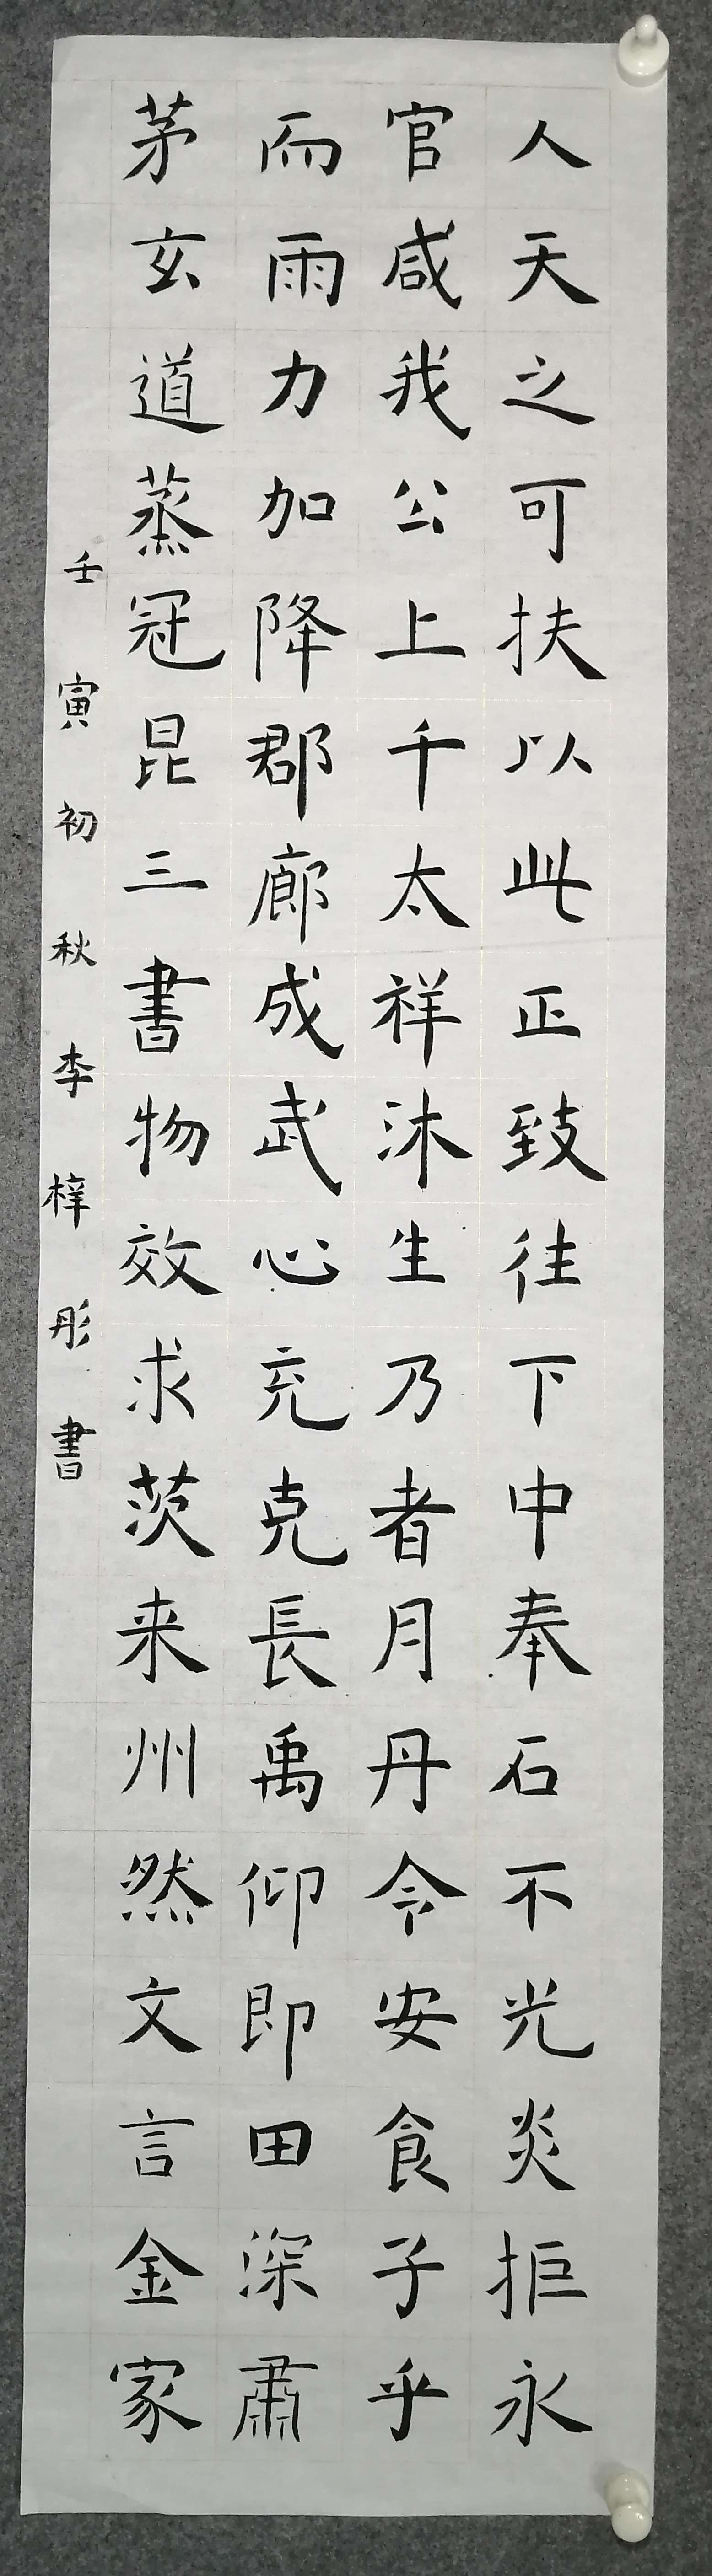 人天之可扶以此正致往下中奉石不光炎拒永
官咸我公上千太祥沐生乃者月丹令安食子乎
而雨力加降郡廊成武心充克長禹仰即田深肅
茅玄道蒸冠昆三書物效求茨来州然文言金家
壬寅初秋李梓彤書